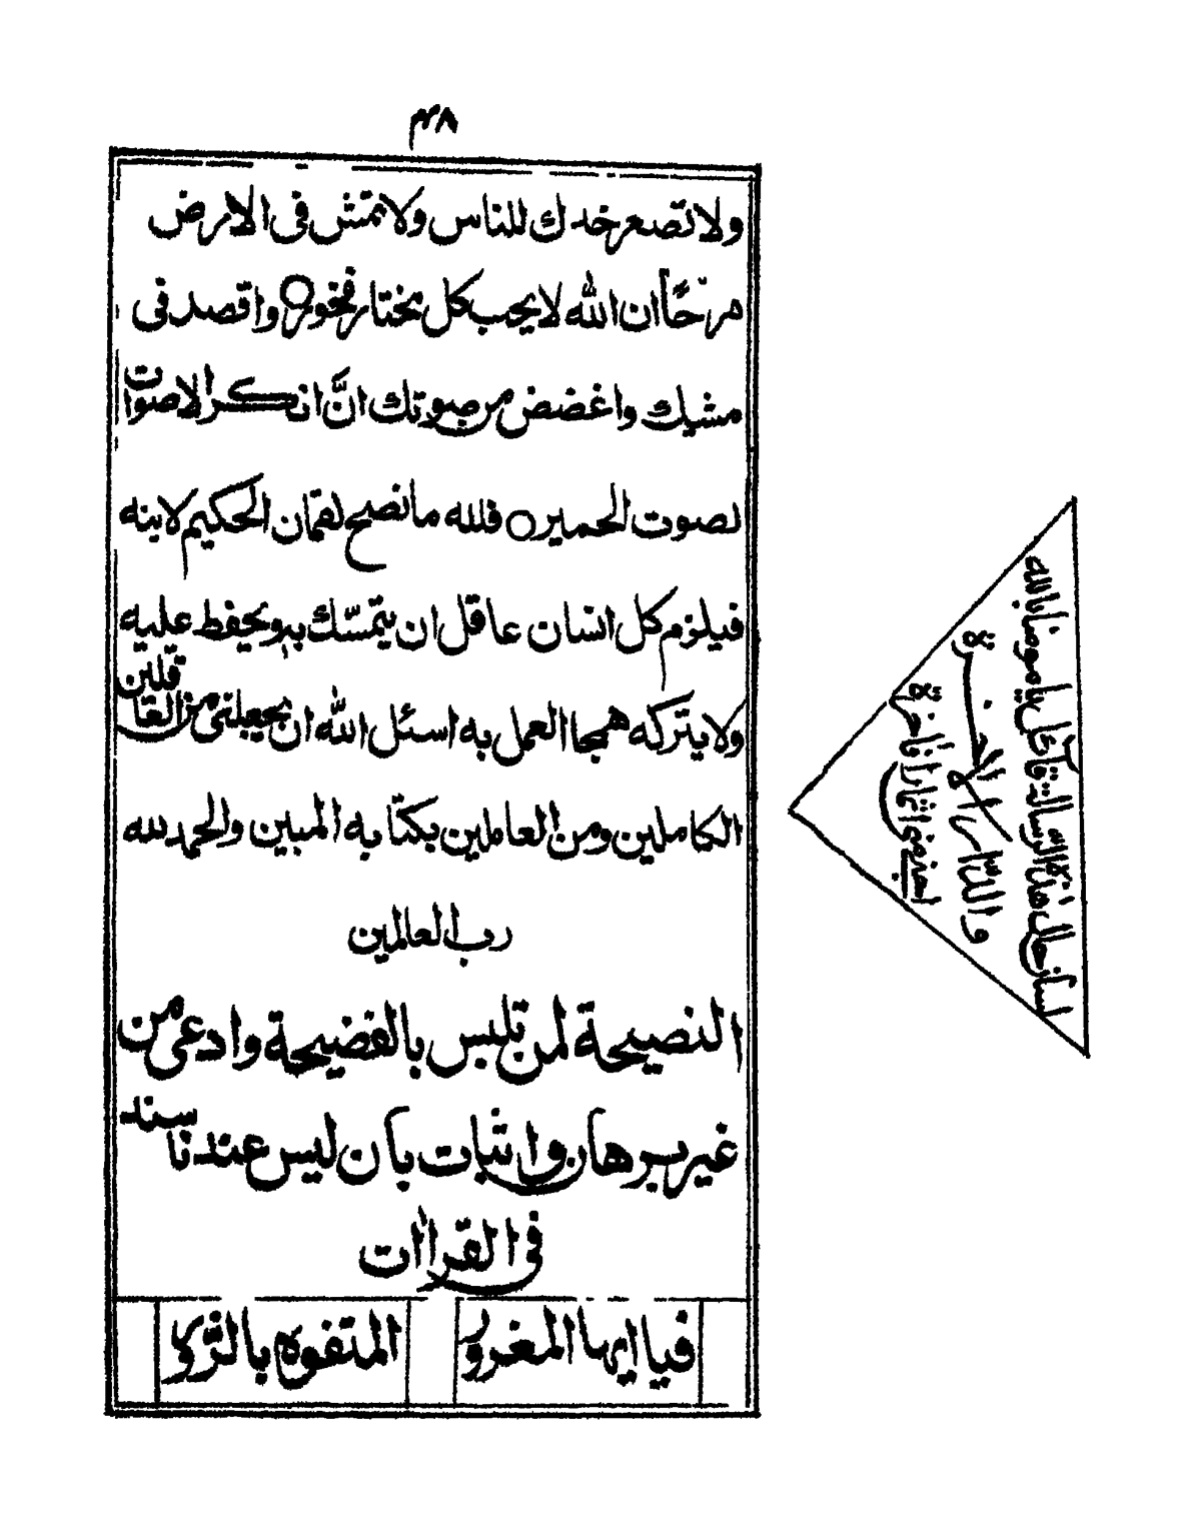 ٣٨
ولا تصعر خدك للناس ولا تمش فى الارض
مرحًا ان الله لا يحب كل مختار فخور ○ واقصد فى
مشيك واغضض من صوتك انَّ انكر الاصوات
لصوت الحمير ○ فلله ما نصح لقمان الحكيم لابنه
فيلزم كل انسان عاقل ان يتمسّك به ويحفظ عليه
ولا يتركه همجا العمل به اسئل الله ان يجعلنى من القائلين
الكاملين ومن العاملين بكتابه المبين والحمد لله
رب العالمين
النصيحة لمن تلبس بالفضيحة وادعى من
غير برهان واثبات بان ليس عندنا سند
فى القراات
فيا ايها المغرور
المتفوه بالزور